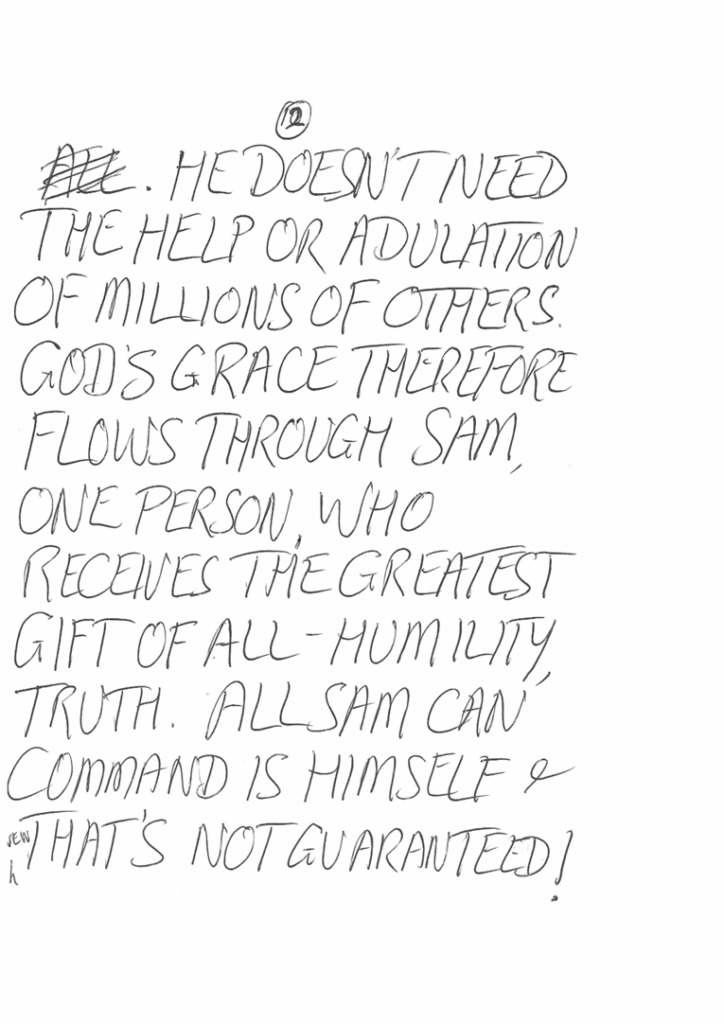 12
. HE DOESN'T NEED
THE HELP OR ADULATION
OF MILLIONS OF OTHERS.
GOD'S GRACE THEREFORE
FLOWS THROUGH SAM,
ONE PERSON, WHO
RECEIVES THE GREATEST
GIFT OF ALL-HUMILITY,
TRUTH. ALL SAM CAN
COMMAND IS HIMSELF &
THAT'S NOT GUARANTEED!